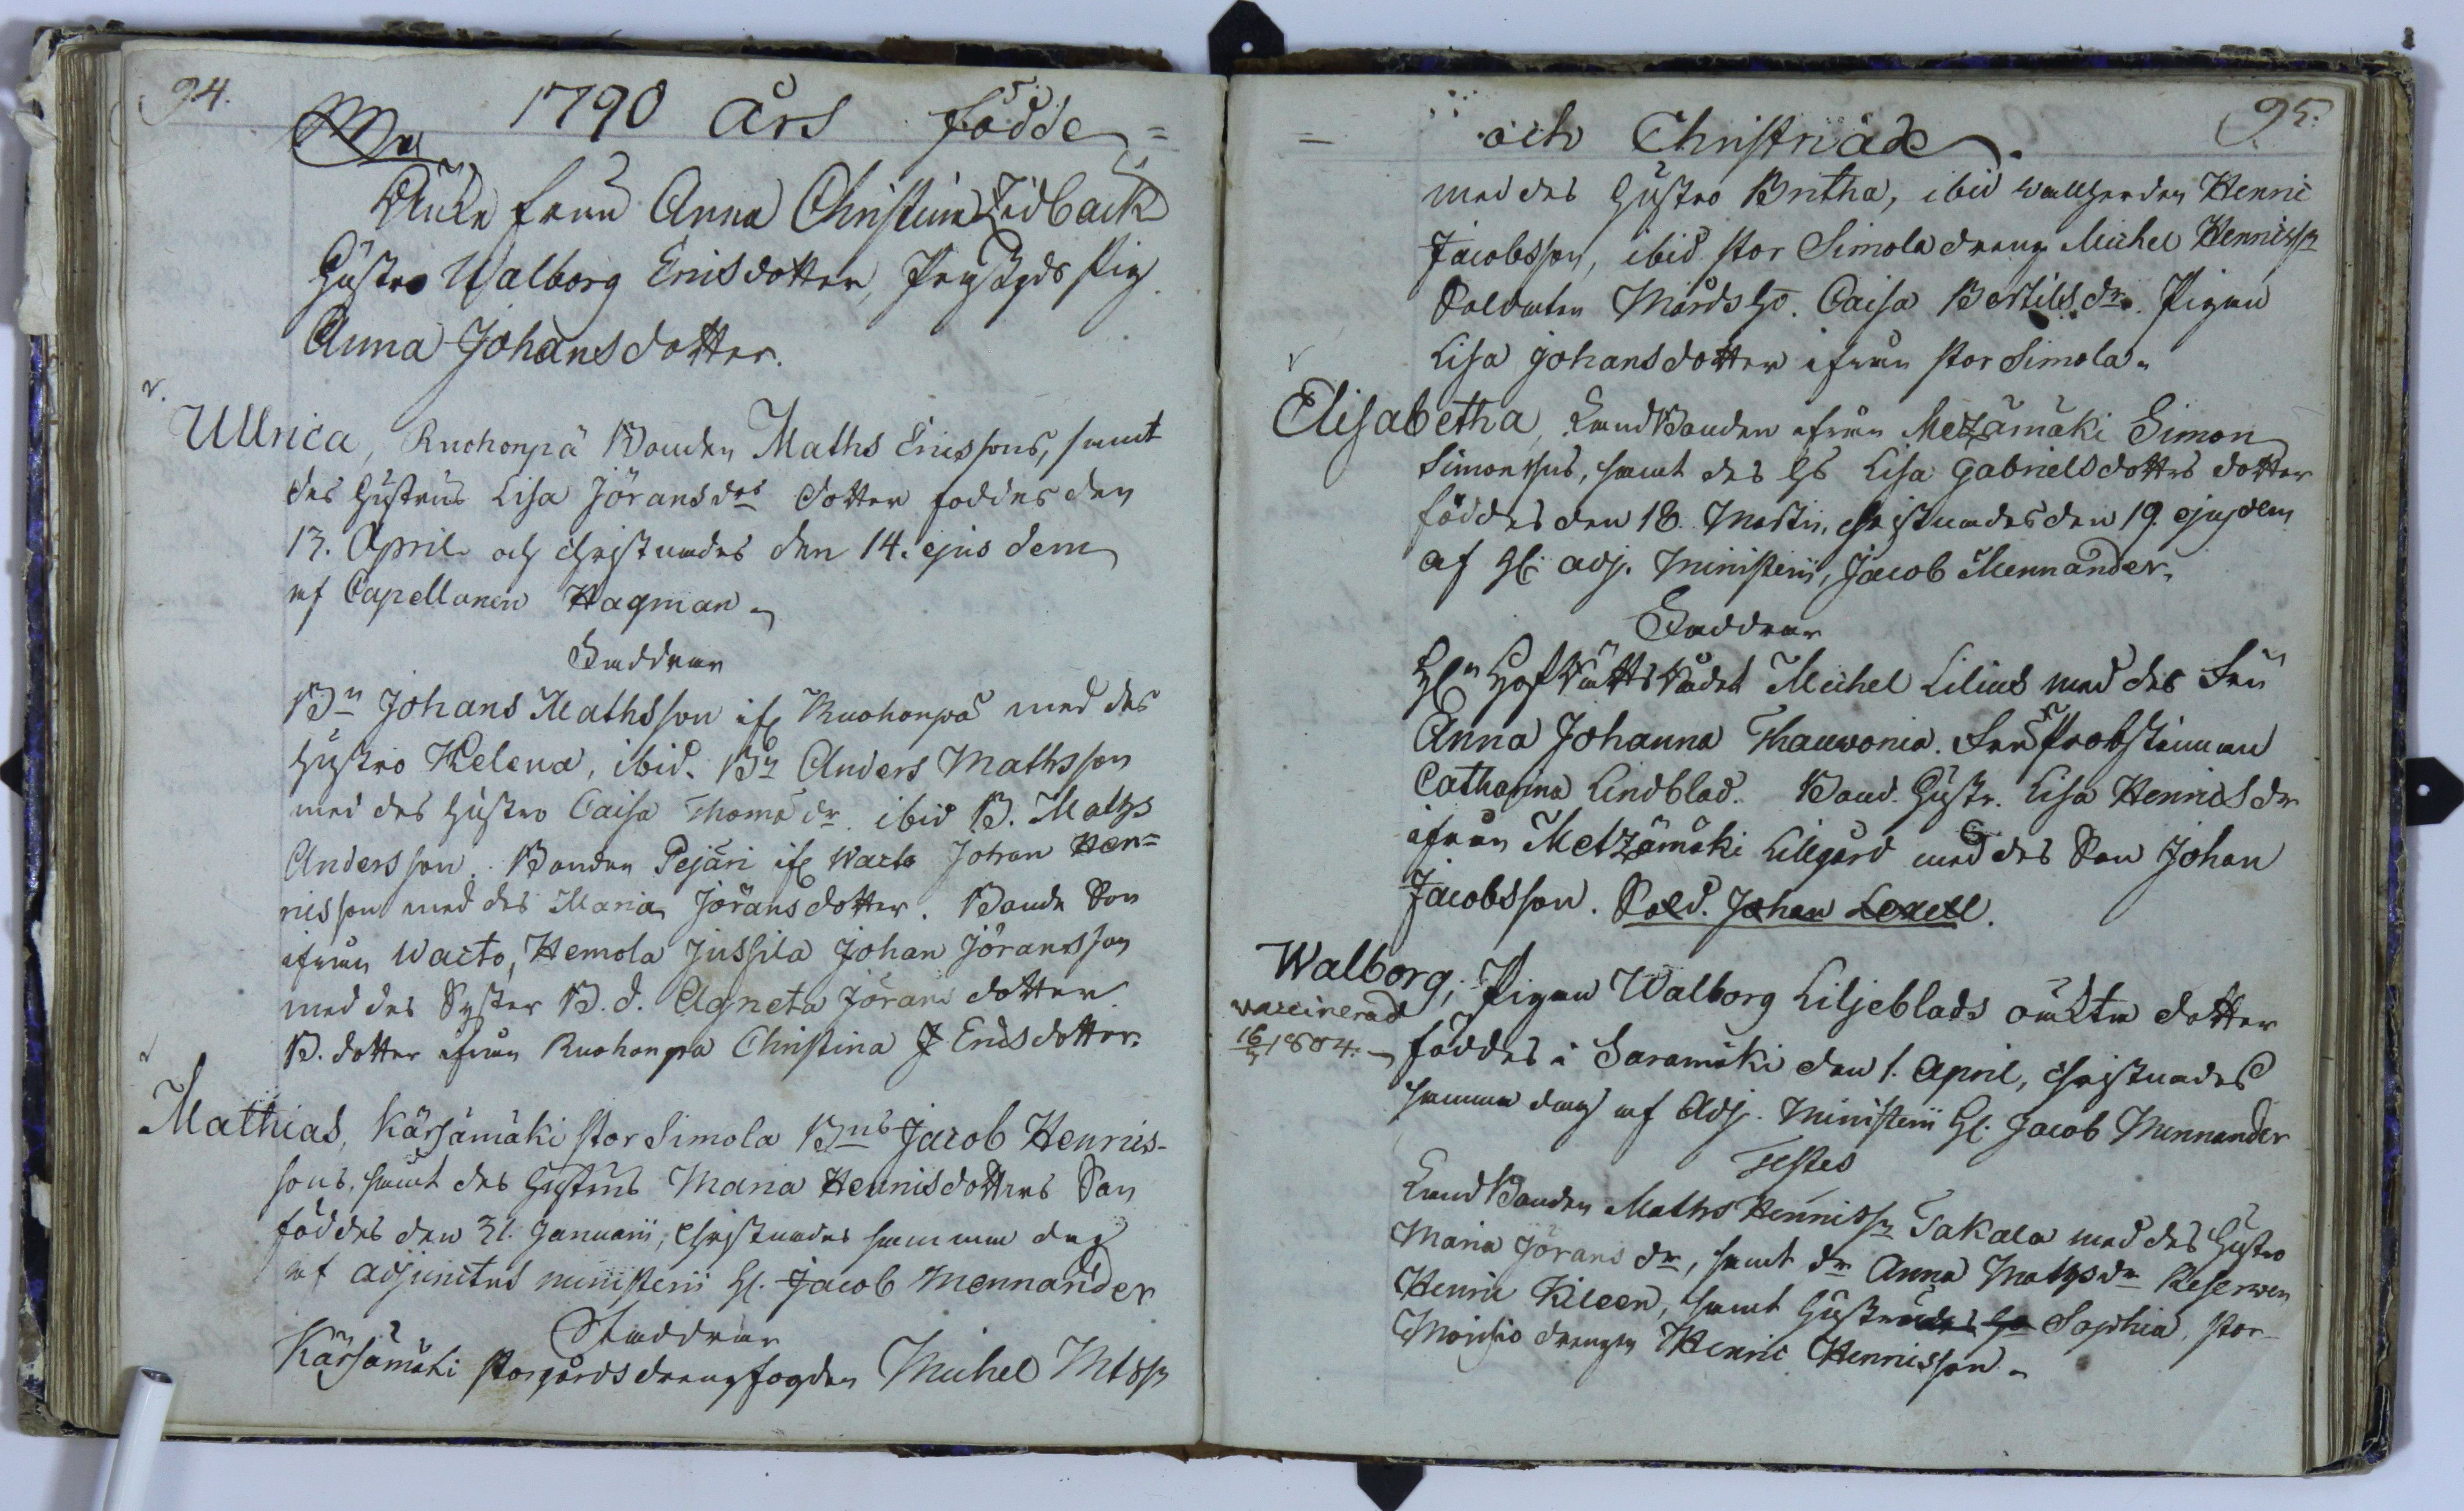 94.
1790 års födde =
Enke fruu Anna Christina Lidback
Hustro Walborg Ericsdotter, Pig
Anna Johansdotter.
Ullrica, Ruohonpä Bonden Maths Ericssons, samt
des Hustrus Lisa Jöransdrs dotter foddes den
13. April. och christnades den 14. ejusdem
af Capellanen Hagman
Faddrar
Bn Johans Mathsson if Ruohonpä med des
Hustro Helena, ibid. Bn Anders Mathsson
med des Hustro Caisa Thomædr. ibid B. Maths
Andersson. Bonden Pejäri if Waeto Johan Hen=
ricsson med des Maria Jöransdotter. Bonde Son
ifrån Wacto, Hemola Jussila Johan Jöransson
med des Syster B. d. Agneta Jöransdotter.
B. dotter ifrån Ruohonpa Christina J Ericsdotter.
Mathias, Kärsämäki stor Simola Bns Jacob Henrics-
sons, samt des Hustrus Maria Henricsdotters Son
föddes den 31. Januarii, Christnades samma dag
af adjunctus ministerii H. Jacob Mennander
Faddrar
Kärsämäki storgårds drengfogden Michel Mtssn
= och Christnade. 95.
med des Hustro Britha, ibid wallherden Henric
Jacobsson, ibid stor Simola dreng Michel Henricssn
Soldaten Mårds Ho. Caisa Bertilsdr. Pigan
Lisa Johansdotter ifrån stor Simola.
Elisabetha, Landbonden ifrån Metzämäki Simon
Simonssons, samt des Hs Lisa Gabrielsdotters dotter
föddes den 18. Martii, christnades den 19. ejusdem
af H. adj. Ministerii, Jacob Mennander.
Faddrar
Hr Hof Rätts Rådet Michel Lilius med des Fru
Anna Johanna Thauvonia. Fru Probstinnan
Catharina Lindblad. Bond. Hustr. Lisa Henricsdr
ifrån Metzämäki Lillgård med des Son Johan
Jacobsson. Sold. Johan Lexell.
Walborg, Pigan Walborg Liljeblads oäkta dotter
vaccinerad
föddes i Saramäki den 1. April, christnades
1804.
samma dag af Adj. Ministerii H. Jacob Mennander
Testes
Landbonden Maths Henricssn Takala med des Hustro
Maria Jöransdr, samt dr Anna Mathsdr Reserven
Henric Kileen, samt Hustru Sophia, stor
Moisio drengen Henric Henricsson.